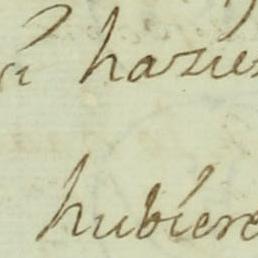 hazie
hubiere